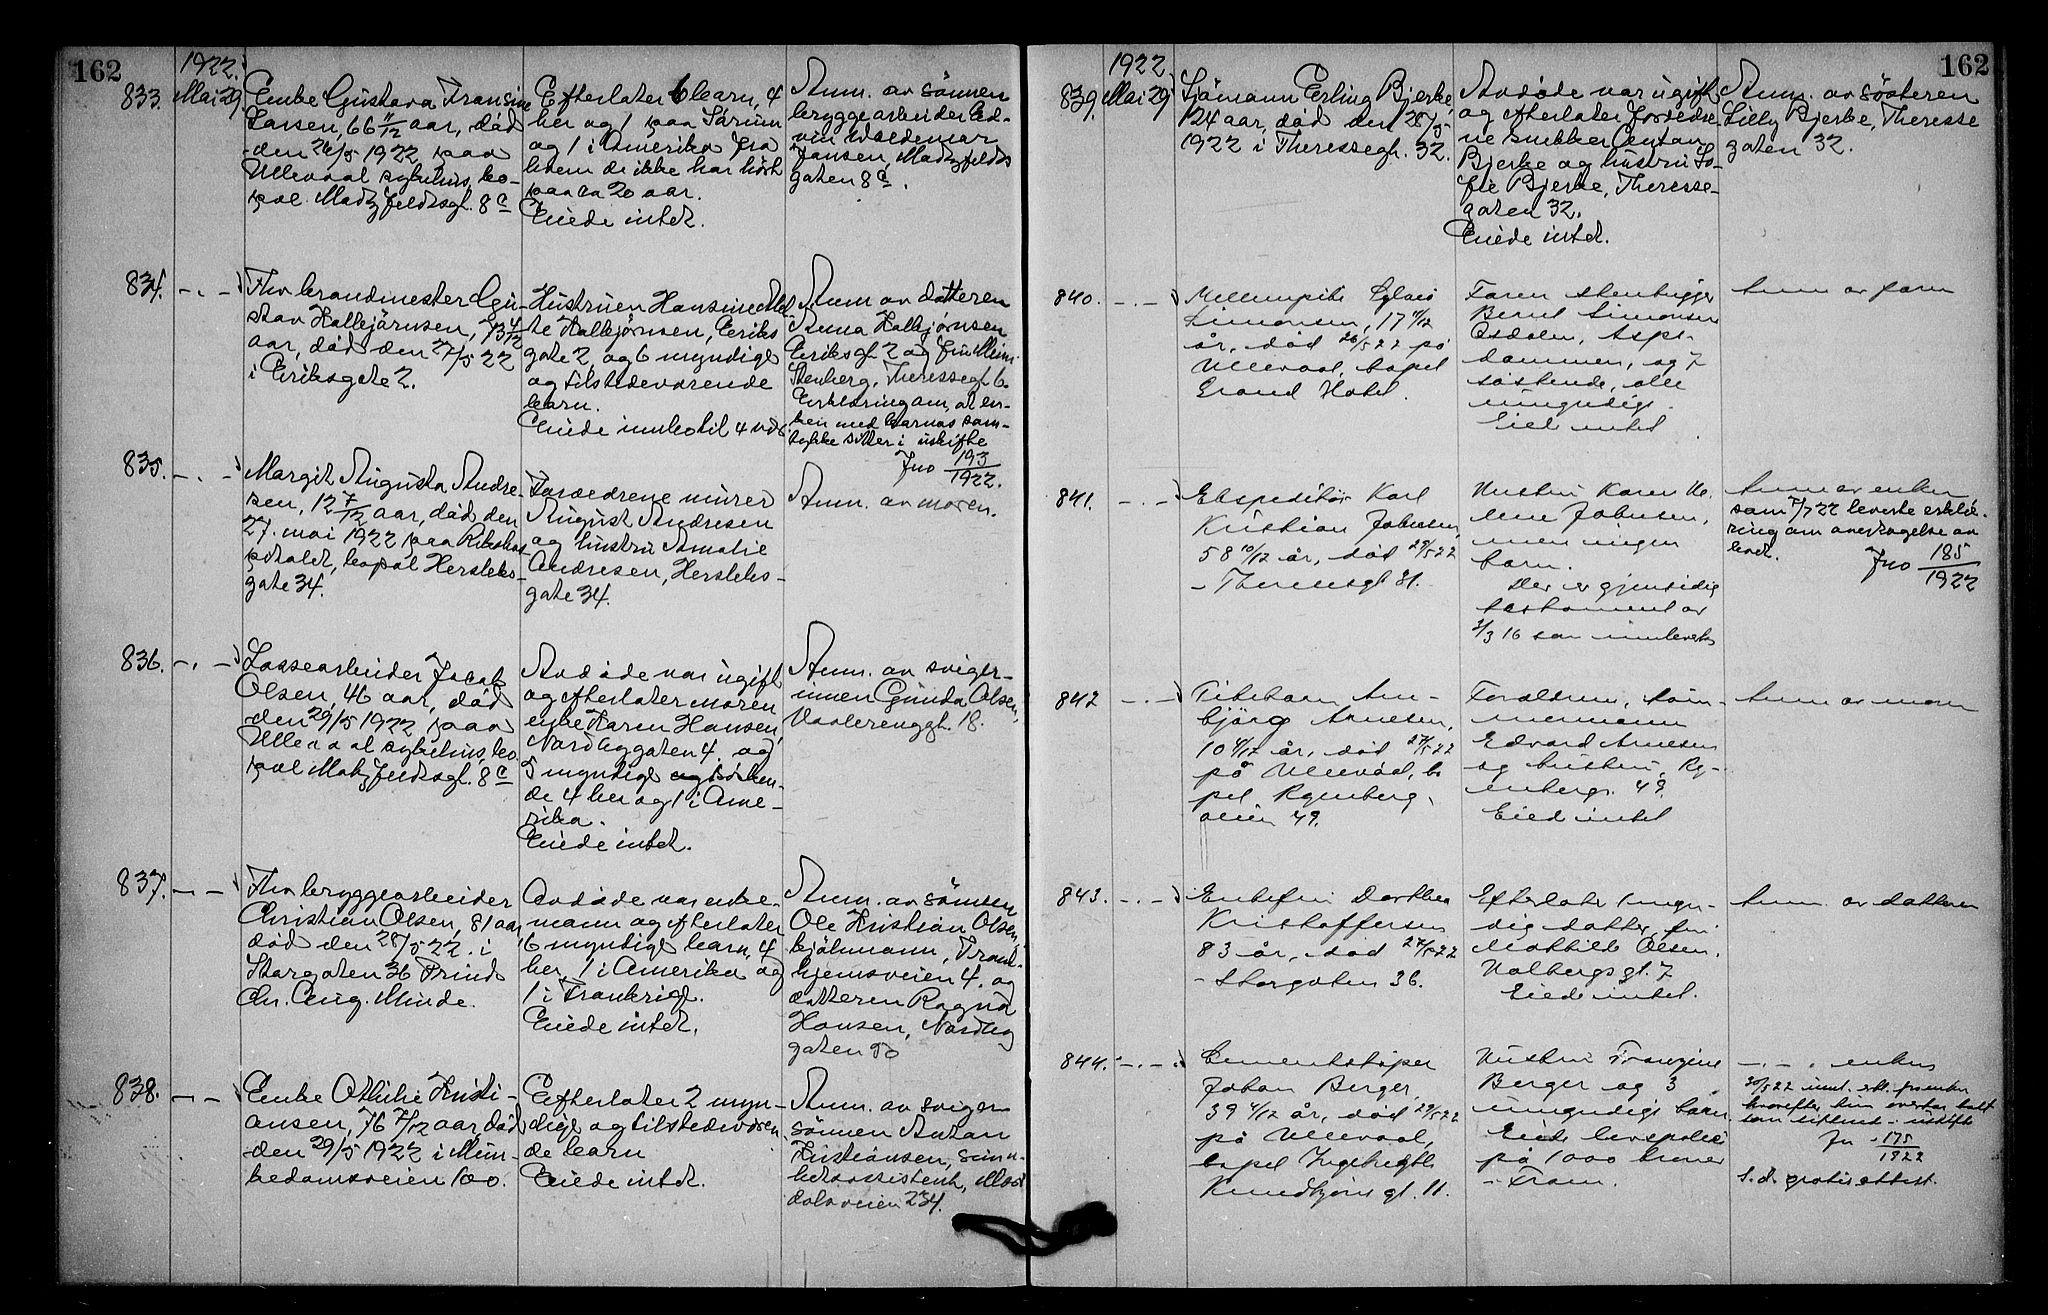 162
1922.
833. Mai 29.
Enke Gustava Fransine
Larsen, 66 11/12 aar, död
den 26/5 1922 paa
Ullevaal sykehus, bo-
pæl Matz Feldtsgt. 8 c
Efterlater 6 barn, 4
her og 1 paa Sörum
og 1 i Amerika fra
hvem de ikke har hört
paa ca 20 aar.
Eiede intet.
Anm. av sönnen
bryggearbeider Ed-
vin Waldemar
Jansen, Matz Feldts
gaten 8 c.
834. -.-
Fhv brandmester Gu-
stav Halbjörnsen, 73
aar, död den 27/5 22
i Eriksgate 2.
Hustruen Hansine
Halbjörnsen, Eriks
gate 2, og 6 myndige
og tilstedeværende
barn.
Eiede innbo til
Anm av datteren
Anna Halbjörnsen
Eriksgt. 2 og
Stenberg, Theresesgt. 6
Erklæring om, at en-
ken med barnas sam-
tykke sitter i uskifte
Jno 193/1922.
835. -.-
Margit Augusta Andre-
sen, 12 7/12 aar, död den
27. mai 1922 paa Rikshos-
pitalet, bopæl Herslebs-
gate 34.
Forældrene murer
August Andresen
og hustru Amalie
Andresen, Herslebs-
gate 34.
Anm. av moren.
836. -.-
Lossearbeider Jacob
Olsen, 46 aar, död
den 29/5 1922 paa
Ullevaal sykehus, bo-
pæl Matz Feldtsgt. 8 c
Avdöde var ugift
og efterlater moren
enke Karen Hansen,
Nordbygaten 4 og
5 myndige söskен-
de 4 her og 1 i Ame-
rika.
Eiede intet.
Anm. av sviger-
innen Gunda Olsen,
Vaalerenggt. 18.
837. - -
Fhv bryggearbeider
Christian Olsen, 81 aar
död den 28/5 22. i
Storgaten 36 Prinds
Chr. Aug. Minde.
Avdöde var enke-
mann og efterlater
6 myndige barn, 4
her, 1 i Amerika og
1 i Frankrig.
Eiede intet.
Anm. av sönnen
Ole Kristian Olsen,
kjölmann, Trond-
hjemsveien 4. og
datteren Ragna
Hansen, Nordby
gaten
838. - -
Enke Othilie Kristi-
ansen, 76 7/12 aar, död
den 29/5 1922 i Mun-
kedamsveien 100.
Efterlater 2 myn-
dige og tilstedeværen
de barn
Eiede intet.
Anm. av sviger
sönnen Anton
Kristiansen, sunn-
hetsassistent, Mari
dalsveien 234.
162
1922
839. Mai 29
Sjömann Erling Bjerke,
24 aar, död den 28/5
1922 i Theresesgt. 32.
Avdöde var ugift
og efterlater foreldre-
ne snekker Gustav
Bjerke og hustru So-
fie Bjerke, Therese-
gaten 32.
Eiede intet.
Anm. av sösteren
Lilly Bjerke, Therese
gaten 32.
840. -.-
Simonsen, 17 11/12
år, död 26/5 22 på
Ullevaal, bopel
Grand Hotel.
Faren stenhugger
Bernt Simonsen
Asdalen, Aspe-
dammen, og 7
söskende, alle
umyndige.
Eied intet
Anm av faren
841. -.-
Ekspeditör Karl
Kristian Johnsen,
58 10/12 år, död 29/5 22
- Theresesgt 31.
Hustru Karen
Johnsen,
men ingen
barn.
Der er gjensidig
testament av
3/3 16 som innleveres
Anm av enken
som 7/7 22 leverte erklæ-
ring om overtagelse av
boet.
Jno 185/1922
842 -.-
Pikebarn An-
björg Arnesen,
10 4/12 år, död 27/5 22
på Ullevaal, bo
pel Ryenberg-
veien 49.
Foreldrene, töm-
mermann
Edvard Arnesen
og hustru, Ry-
enbergv. 49.
Eied intet
Anm av moren
843. -.-
Enkefru Dorthea
Kristoffersen
83 år, död 27/5 22
- Storgaten 36.
Efterlater 1 myn-
dig datter, fru
Mathilde Olsen,
Holbergs gt. 7
Eiede intet.
Anm. av datteren
844. -.-
Cementstöper
Johan Berger,
39 4/12 år, död 29/5 22
på Ullevaal,
bopel Ingebregt
Knudtsöns gt. 11.
Hustru Franzine
Berger og 3
umyndige barn
Eiede livspolice
på 1000 kroner
- Fram.
-.- enken
30/5 22 innl. erkl. fra enken
hvorefter hun overtar boet
som sittende i uskifte
Jn 175/1922
S. d. gratis attest.